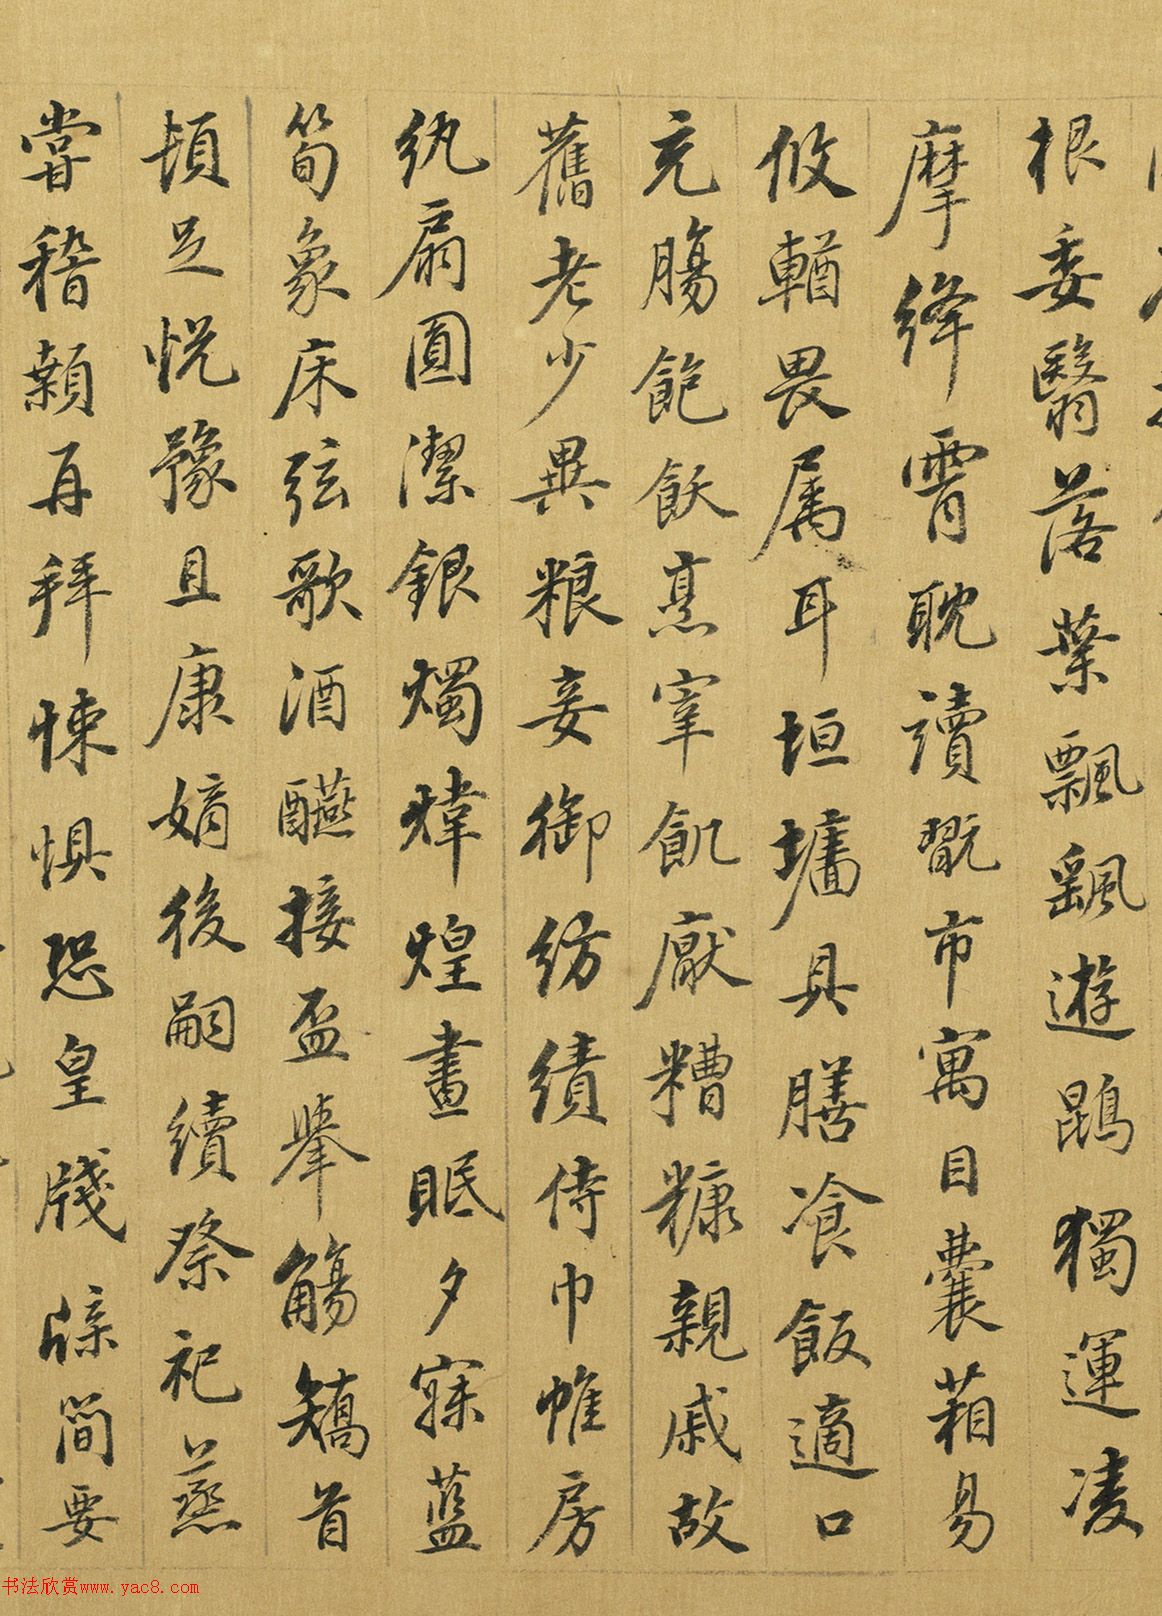 根委翳落葉飄飖遊鵾獨運凌
摩絳霄耽讀翫市寓目囊葙易
攸輶畏属耳垣墻具膳飡飯適口
充腸飽飫烹宰飢厭糟糠親戚故
舊老少異粮妾御紡績侍巾帷房
紈扇圓潔銀燭煒煌晝眠夕寐藍
筍象床弦歌酒讌接盃舉觴矯首
頓足悦豫且康嫡後嗣續祭祀蒸
嘗稽顙再拜悚惧恐皇牋牒簡要
书法欣赏www.yac8.com